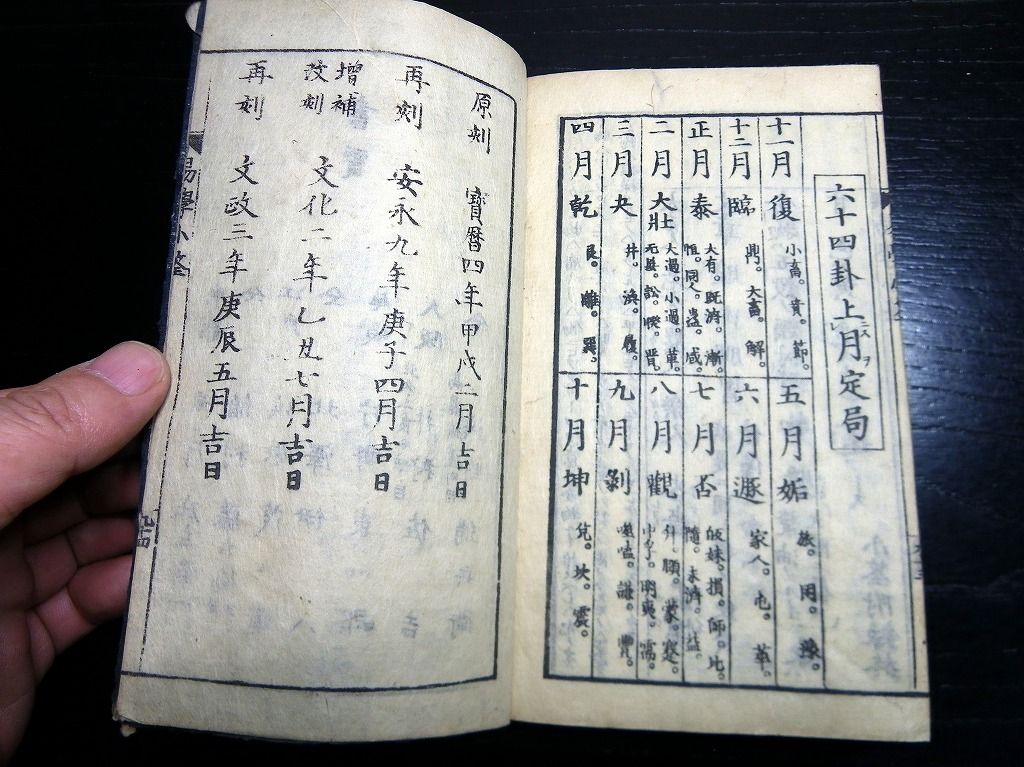 六十四卦上月定局
十一月復 小畜。賁。節。
五月姤 旅。困。豫。
十二月臨 鼎。大畜。解。
六月遯 家人。屯。萃。
正月泰 大有。既濟。漸。
恒。同人。蠱。咸。
七月否 㱕妹。損。師。比。
隨。未濟。益。
二月大壯 大過。小過。革。
无妄。訟。睽。晋。
八月觀 升。頤。蒙。蹇。
中孚。明夷。需。
三月夬 井。渙。履。
九月剝 噬嗑。謙。豐。
四月乾 艮。離。巽。
十月坤 兌。坎。震。
原刻 寶暦四年甲戌二月吉日
再刻 安永九年庚子四月吉日
増補
改刻 文化二年乙丑七月吉日
再刻 文政三年庚辰五月吉日
易學小筌